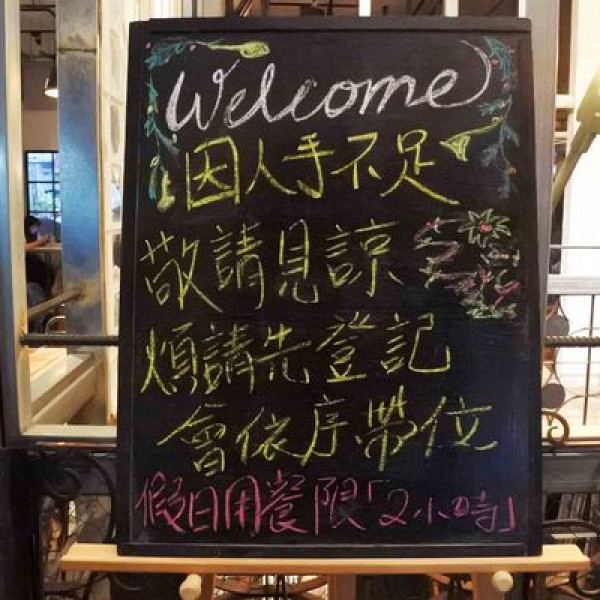 Welcome
因人手不足
敬請見諒
煩請先登記
會依序帶位
假日用餐限「2小時」